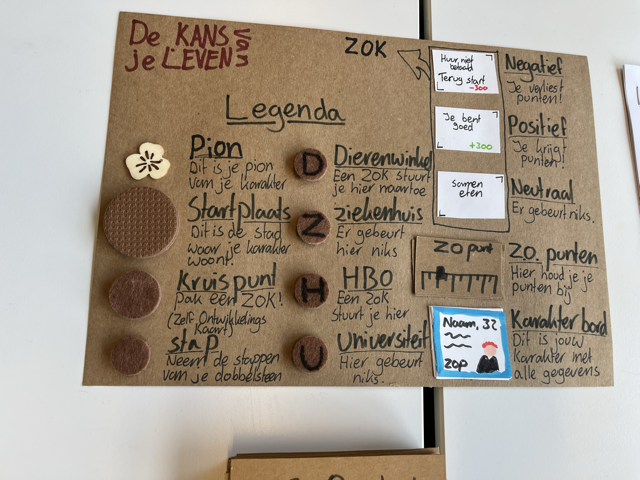 De KANS
van
je LEVEN
ZOK
Legenda
Pion
Dit is je pion
van je karakter
Startplaats
Dit is de stad
waar je karakter
woont.
Kruispunt
Pak een ZOK!
(Zelf Ontwikkelings
Kaart)
stap
Neem de stappen
van je dobbelsteen
D
Dierenwinkel
Een ZOK stuurt
je hier naartoe
Z
ziekenhuis
Er gebeurt
hier niks
H
HBO
Een ZOK
stuurt je hier
U
Universiteit
Hier gebeurt
niks.
Huur niet
betaald
Terug start
-300
Negatief
Je verliest
punten!
Je bent
goed
+300
Positief
Je krijgt
punten!
Samen
eten
Neutraal
Er gebeurt niks.
ZO punt
ZO. punten
Hier houd je je
punten bij
Naam, 32
ZOP
Karakterbord
Dit is jouw
Karakter met
alle gegevens